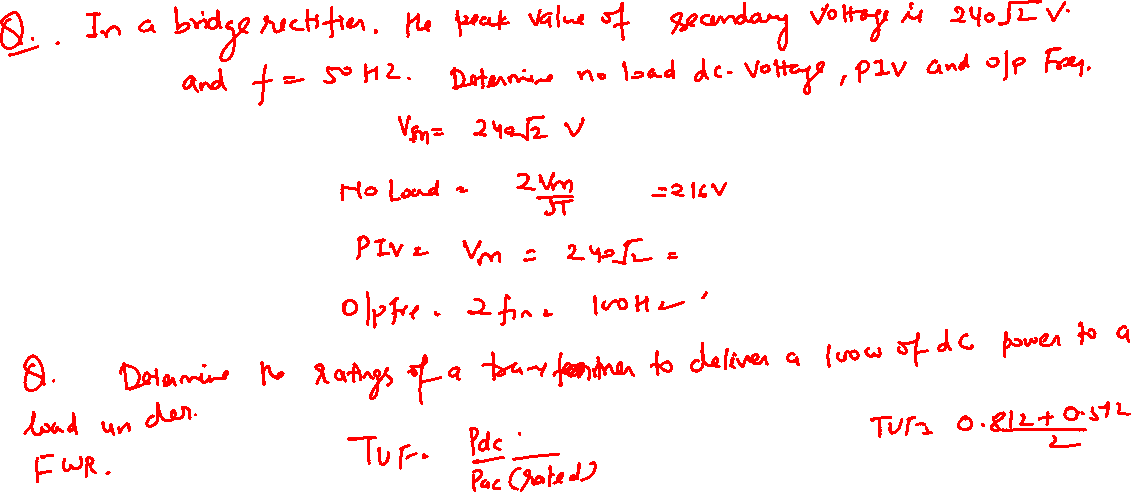 Q. In a bridge rectifier. the peak value of secondary voltage is 240√2 V.
and f = 50 HZ. Determine no load dc. Voltage, PIV and o/p Freq.
Vsm = 240√2 V
No Load = 2Vm/π = 216V
PIV = Vm = 240√2 =
O/p fre. 2fin = 100Hz
Q. Determine the ratings of a transformer to deliver a 100W of dc power to a
load under.
FWR. TUF = Pdc / Pac (rated) TUF = 0.812 + 0.572 / 2